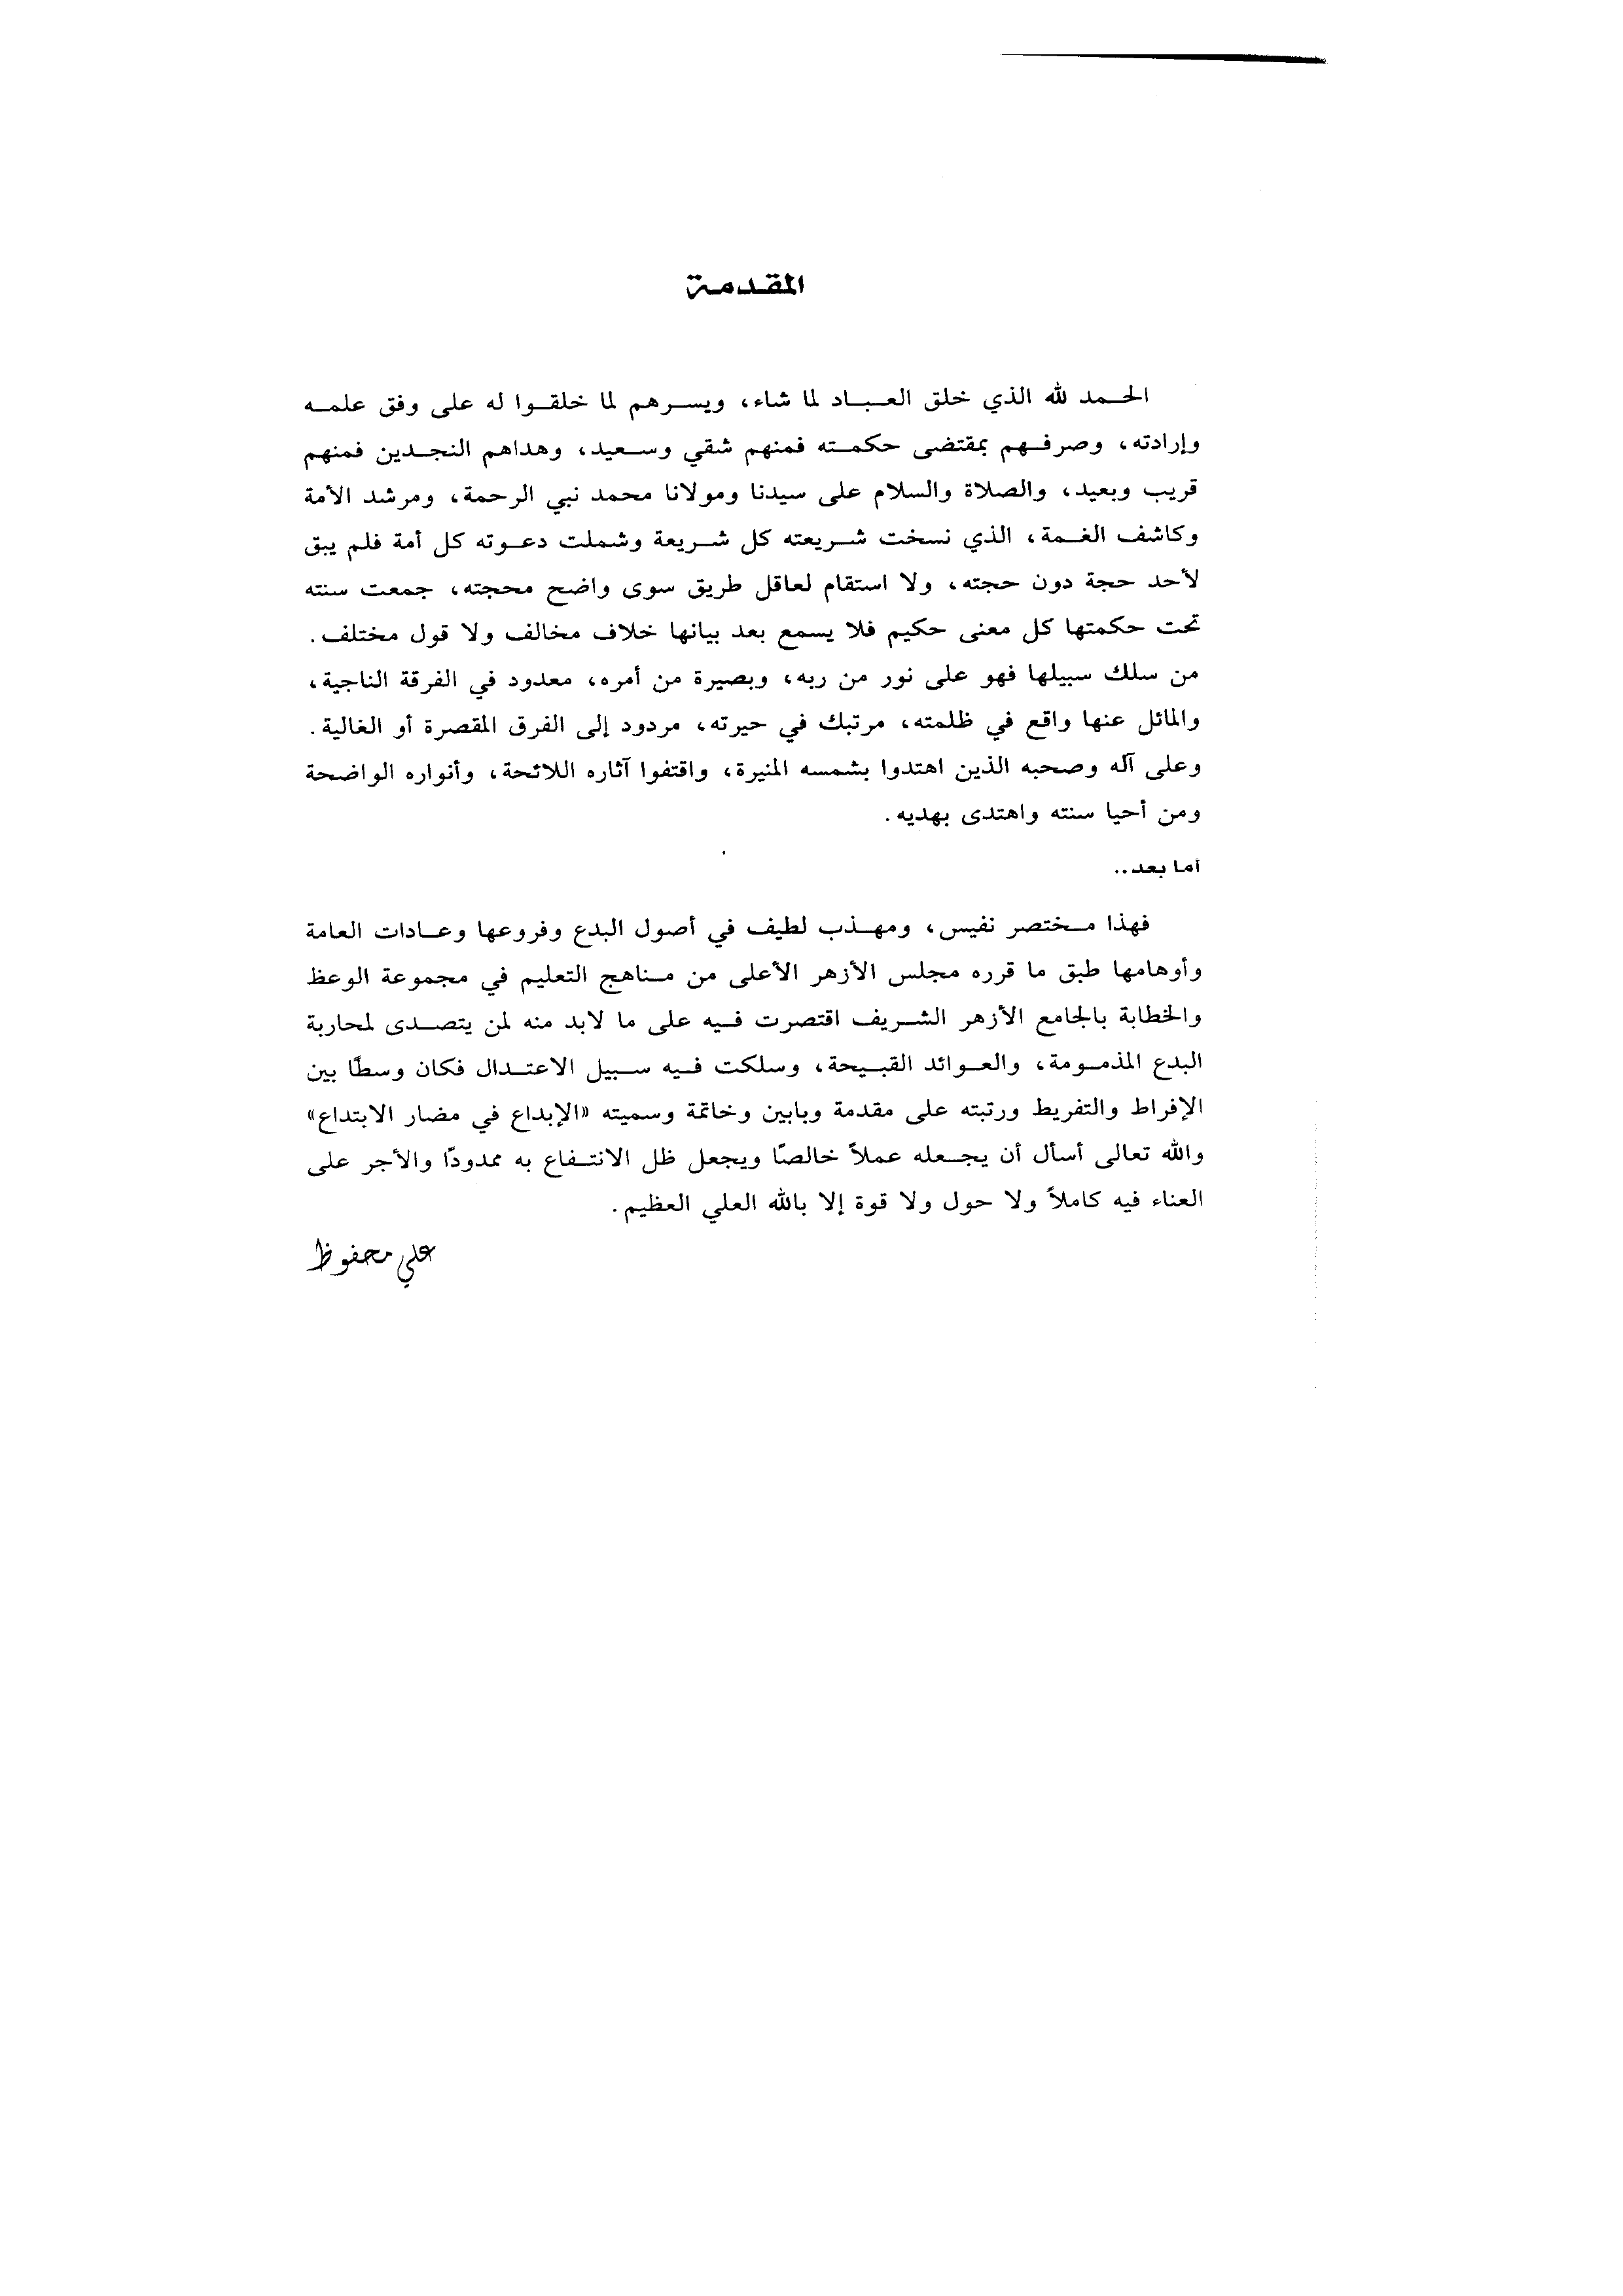 المقدمة
الحمد لله الذي خلق العباد لما شاء، ويسرهم لما خلقوا له على وفق علمه
وإرادته، وصرفهم بمقتضى حكمته فمنهم شقي وسعيد، وهداهم النجدين فمنهم
قريب وبعيد، والصلاة والسلام على سيدنا ومولانا محمد نبي الرحمة، ومرشد الأمة
وكاشف الغمة، الذي نسخت شريعته كل شريعة وشملت دعوته كل أمة فلم يبق
لأحد حجة دون حجته، ولا استقام لعاقل طريق سوى واضح محجته، جمعت سنته
تحت حكمتها كل معنى حكيم فلا يسمع بعد بيانها خلاف مخالف ولا قول مختلف.
من سلك سبيلها فهو على نور من ربه، وبصيرة من أمره، معدود في الفرقة الناجية،
والمائل عنها واقع في ظلمته، مرتبك في حيرته، مردود إلى الفرق المقصرة أو الغالية.
وعلى آله وصحبه الذين اهتدوا بشمسه المنيرة، واقتفوا آثاره اللائحة، وأنواره الواضحة
ومن أحيا سنته واهتدى بهديه.
أما بعد..
فهذا مختصر نفيس، ومهذب لطيف في أصول البدع وفروعها وعادات العامة
وأوهامها طبق ما قرره مجلس الأزهر الأعلى من مناهج التعليم في مجموعة الوعظ
والخطابة بالجامع الأزهر الشريف اقتصرت فيه على ما لابد منه لمن يتصدى لمحاربة
البدع المذمومة، والعوائد القبيحة، وسلكت فيه سبيل الاعتدال فكان وسطًا بين
الإفراط والتفريط ورتبته على مقدمة وبابين وخاتمة وسميته «الإبداع في مضار الابتداع»
والله تعالى أسأل أن يجعله عملاً خالصًا ويجعل ظل الانتفاع به ممدودًا والأجر على
العناء فيه كاملاً ولا حول ولا قوة إلا بالله العلي العظيم.
علي محفوظ